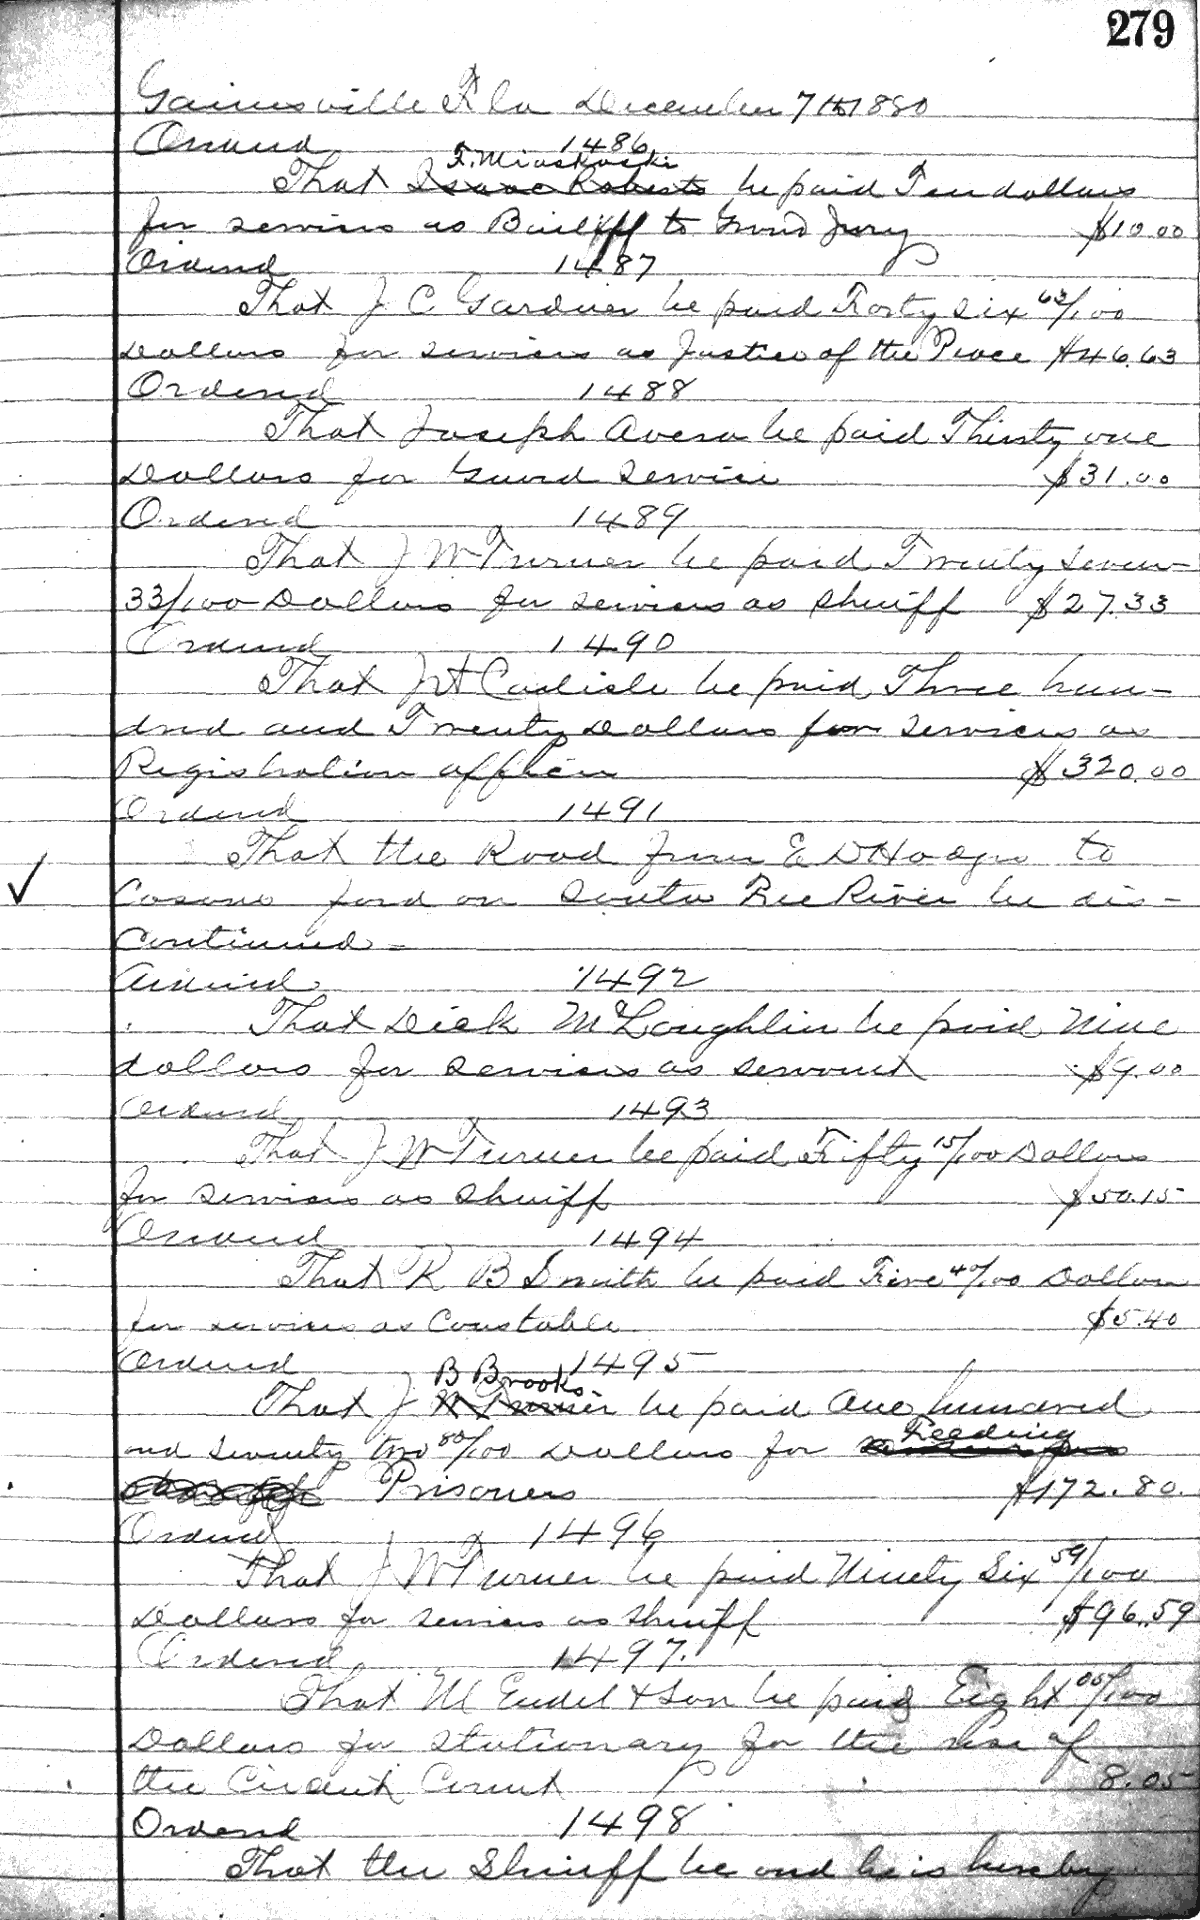 279
Gainesville Fla December 7th 1880
Ordered 1486
F. Miaskoski
That Isaac Roberts be paid Ten dollars
for services as Bailiff to Grand Jury $10.00
Ordered 1487
That J C Gardner be paid Forty Six 63/100
Dollars for services as Justice of the Peace $46.63
Ordered 1488
That Joseph Avera be paid Thirty one
Dollars for Guard Service $31.00
Ordered 1489
That J W Turner be paid Twenty Seven
33/100 Dollars for services as Sheriff $27.33
Ordered 1490
That Carlisle be paid Three hun-
dred and Twenty Dollars for Services as
Registration officer $320.00
Ordered 1491
That the Road from E D Hodge to
ford on Santa Fee River be dis-
continued -
Ordered 1492
That Dick McLoughlin be paid Nine
dollars for services as servant $9.00
Ordered 1493
That J W Turner be paid Fifty 15/100 Dollars
for services as Sheriff $50.15
Ordered 1494
That R B Smith be paid Five 40/100 Dollars
for services as Constable $5.40
Ordered 1495
B Brooks
That J W Turner be paid One hundred
and seventy two 80/100 Dollars for Feeding
Prisoners $172.80
Ordered 1496
That J W Turner be paid Ninety Six 59/100
Dollars for services as Sheriff $96.59
Ordered 1497.
That M Endel & Son be paid Eight 05/100
Dollars for Stationary for the use of
the Circuit Court 8.05
Ordered 1498
That the Sheriff be and he is hereby